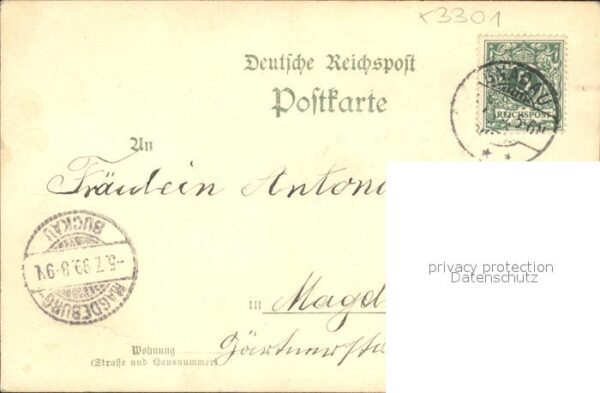 x3301
Deutsche Reichspost
Postkarte
REICHSPOST
An
Fräulein Antoni
MAGDEBURG-
BUCKAU
-5.7.99.8-9V.
privacy protection
Datenschutz
in Magd
Wohnung
(Straße und Hausnummer)
Gärtnerstr